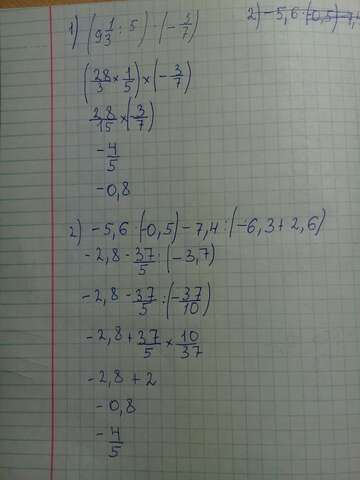 1) (9 1/3 : 5) · (- 3/7)
(28/3 × 1/5) × (- 3/7)
28/15 × (- 3/7)
- 4/5
-0,8
2) -5,6 · (-0,5) - 7,4 : (-6,3 + 2,6)
-2,8 - 37/5 : (-3,7)
-2,8 - 37/5 : (- 37/10)
-2,8 + 37/5 × 10/37
-2,8 + 2
-0,8
- 4/5